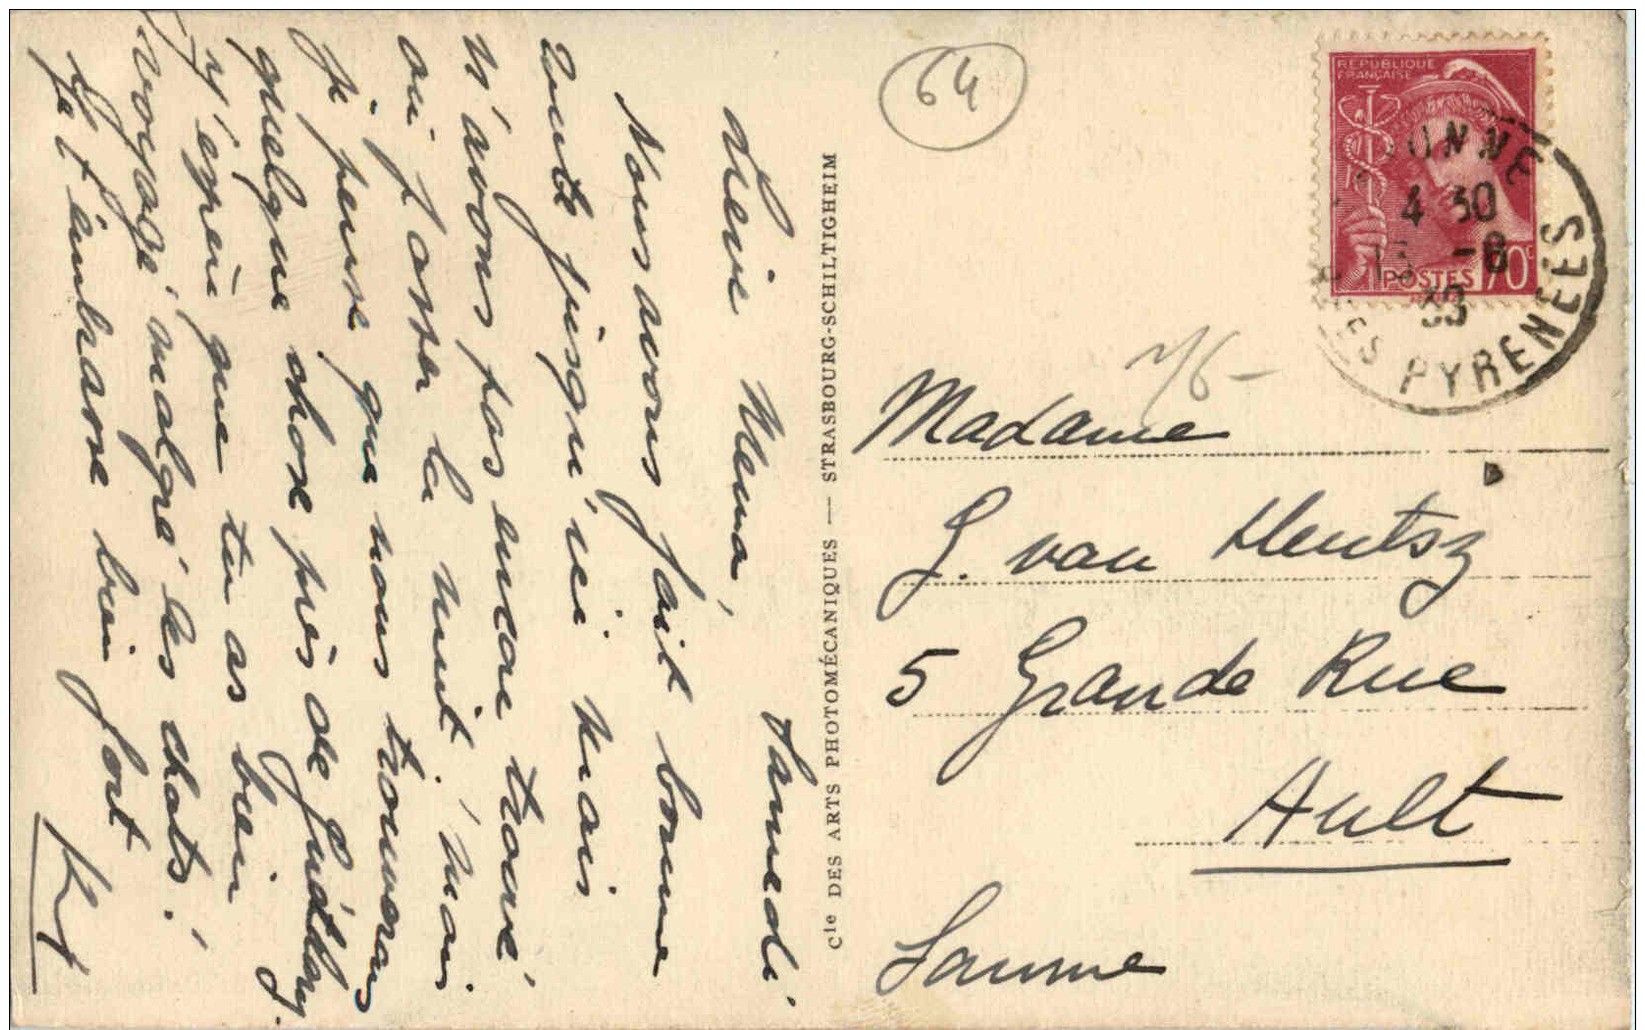 Samedi
Chère Nema,
Nous avons fait bonne
route jusqu'ici mais
n'avons pas encore trouvé
où passer la nuit, mais
je pense que nous trouverons
quelque chose près de
J'espère que tu as bien
voyagé malgré les chats!
Je t'embrasse bien fort
Cie DES ARTS PHOTOMÉCANIQUES — STRASBOURG-SCHILTIGHEIM
64
REPUBLIQUE
FRANÇAISE
POSTES 70c
ONNE
4 30
13 -8
39
SES PYRENEES
Madame
J. van Hentsz
5 Grande Rue
Ault
Somme